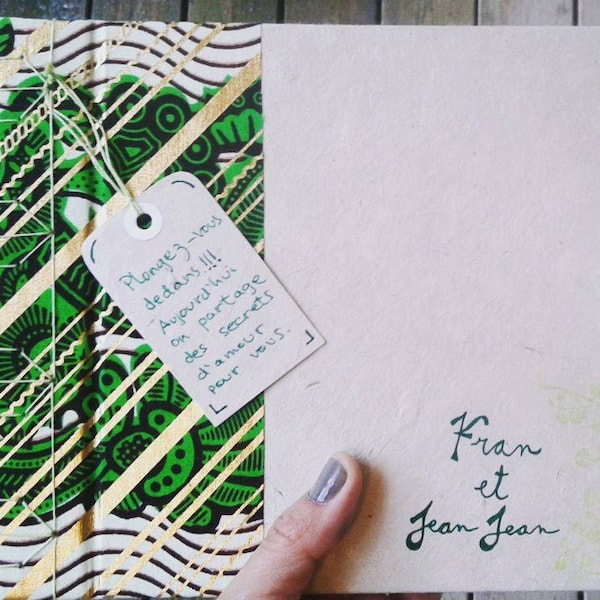 Plongez-vous
dedans!!!
Aujourd'hui
on partage
des secrets
d'amour
pour vous.
Fran
et
Jean Jean